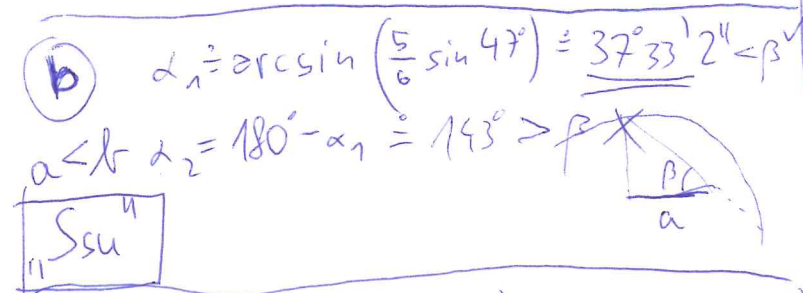 b α₁ ≐ arcsin (5/6 sin 47°) ≐ 37°33'2" < β ✓
a < b α₂ = 180° - α₁ ≐ 143° > β ✗
β
a
"Ssu"